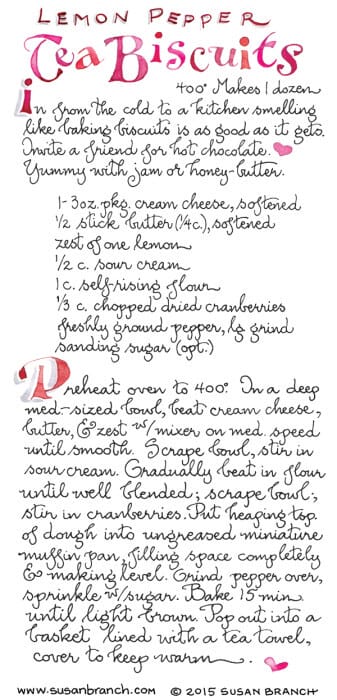 LEMON PEPPER
Tea Biscuits
400° Makes 1 dozen
In from the cold to a kitchen smelling
like baking biscuits is as good as it gets.
Invite a friend for hot chocolate.
Yummy with jam or honey-butter.
1-3oz. pkg. cream cheese, softened
1/2 stick butter (1/4 c.), softened
zest of one lemon
1/2 c. sour cream
1 c. self-rising flour
1/3 c. chopped dried cranberries
freshly ground pepper, lg grind
sanding sugar (opt.)
Preheat oven to 400°. In a deep
med-sized bowl, beat cream cheese,
butter, & zest w/mixer on med. speed
until smooth. Scrape bowl, stir in
sour cream. Gradually beat in flour
until well blended; scrape bowl;
stir in cranberries. Put heaping tbsp.
of dough into ungreased miniature
muffin pan, filling space completely
& making level. Grind pepper over,
sprinkle w/sugar. Bake 15 min.
until light brown. Pop out into a
basket lined with a tea towel,
cover to keep warm.
www.susanbranch.com © 2015 SUSAN BRANCH